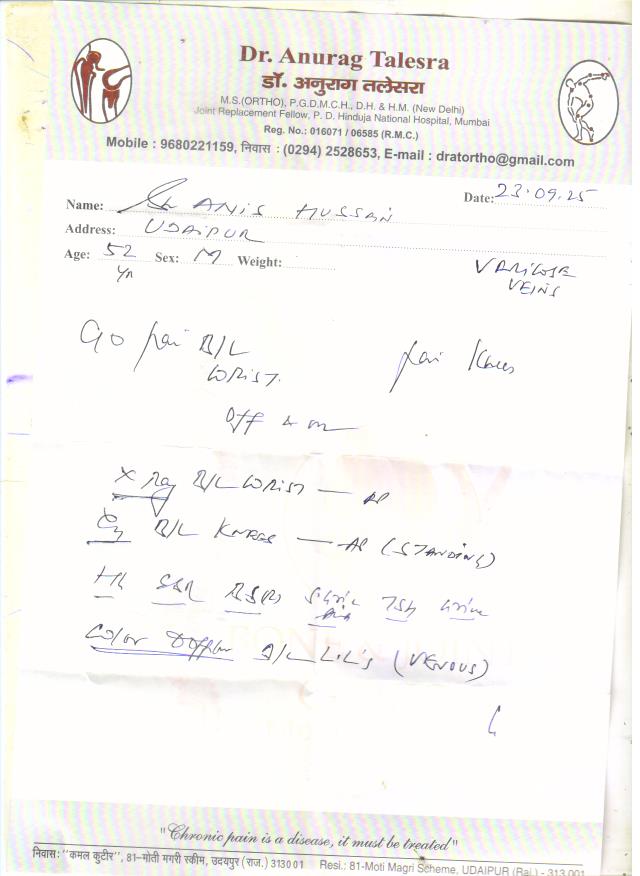 Dr. Anurag Talesra
डॉ. अनुराग तलेसरा
M.S.(ORTHO), P.G.D.M.C.H., D.H. & H.M. (New Delhi)
Joint Replacement Fellow, P. D. Hinduja National Hospital, Mumbai
Reg. No.: 016071 / 06585 (R.M.C.)
Mobile : 9680221159, निवास : (0294) 2528653, E-mail : dratortho@gmail.com
Name: ANIS HUSSAIN Date: 23.09.25
Address: UDAIPUR
Age: 52 yr Sex: M Weight:
VARICOSE
VEINS
C/o pain B/L pain Knees
WRIST.
Off & on
X Ray B/L WRIST — AP
B/L KNEES — AP (STANDING)
Hb ESR RBS(R) S. Uric TSH Urine
Acid
Color Doppler B/L L.L's (VENOUS)
"Chronic pain is a disease, it must be treated"
निवास: "कमल कुटीर", 81–मोती मगरी स्कीम, उदयपुर (राज.) 313001 Resi.: 81-Moti Magri Scheme, UDAIPUR (Raj.) - 313 001